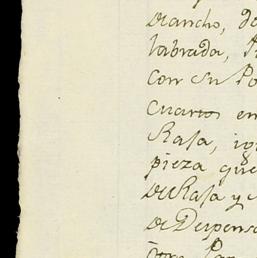 de ancho, de
labrada,
con su Po
cuarto en
Rasa, ig
pieza que
de Rasa y
de Despens